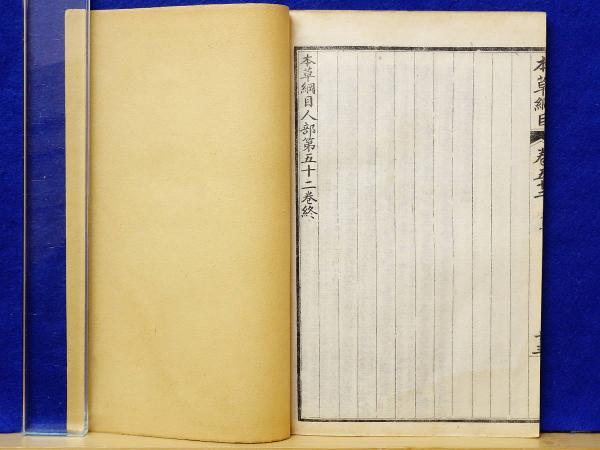 本草綱目 卷五十二
十三
本草綱目人部第五十二卷終